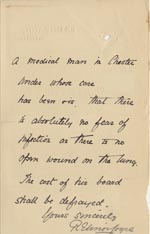 A medical man in Chester
under whose care
has been                 that there
is absolutely no fear of
infection as there is no
open wound on the lung.
The cost of his board
shall be defrayed.
Yours sincerely